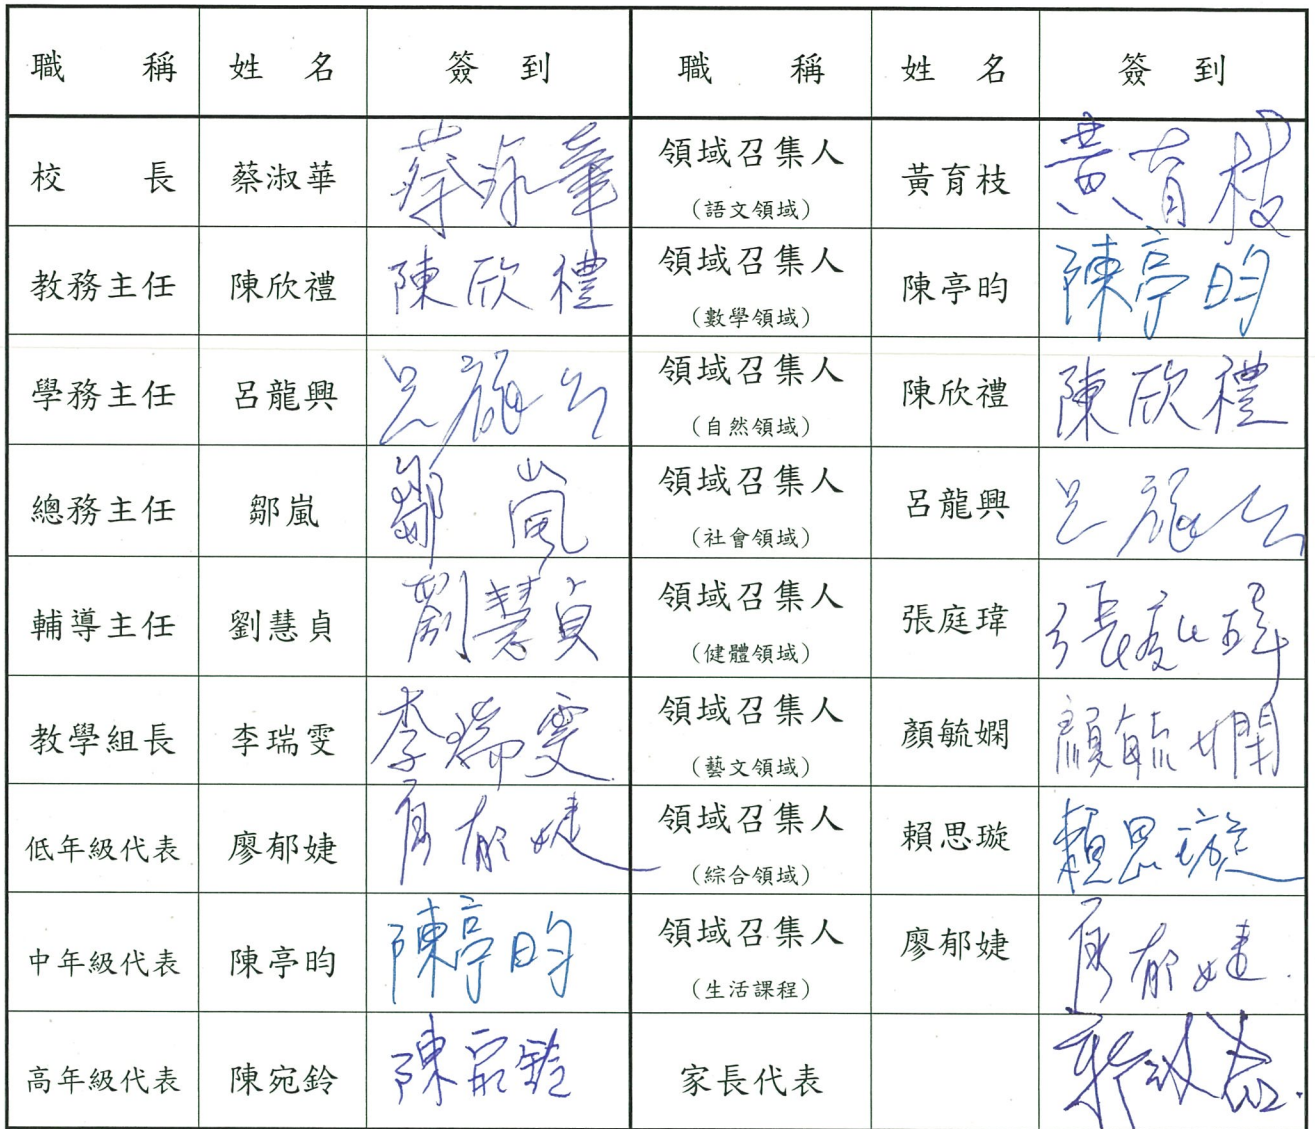 職 稱 姓 名 簽 到 職 稱 姓 名 簽 到
校 長 蔡淑華 蔡淑華 領域召集人 (語文領域) 黃育枝 黃育枝
教務主任 陳欣禮 陳欣禮 領域召集人 (數學領域) 陳亭昀 陳亭昀
學務主任 呂龍興 呂龍興 領域召集人 (自然領域) 陳欣禮 陳欣禮
總務主任 鄒嵐 鄒嵐 領域召集人 (社會領域) 呂龍興 呂龍興
輔導主任 劉慧貞 劉慧貞 領域召集人 (健體領域) 張庭瑋 張庭瑋
教學組長 李瑞雯 李瑞雯 領域召集人 (藝文領域) 顏毓嫻 顏毓嫻
低年級代表 廖郁婕 廖郁婕 領域召集人 (綜合領域) 賴思璇 賴思璇
中年級代表 陳亭昀 陳亭昀 領域召集人 (生活課程) 廖郁婕 廖郁婕
高年級代表 陳宛鈴 陳宛鈴 家長代表